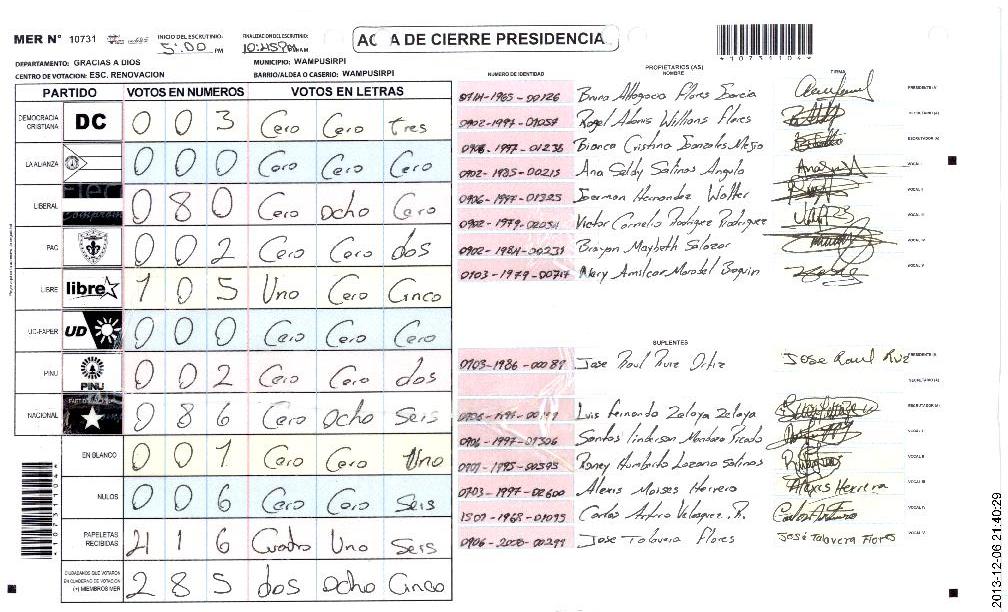 MER N° 10731
INICIO DEL ESCRUTINIO:
5:00 PM
FINALIZACION DEL ESCRUTINIO:
10:45 PM AM
ACTA DE CIERRE PRESIDENCIA
*10731104*
DEPARTAMENTO: GRACIAS A DIOS
MUNICIPIO: WAMPUSIRPI
CENTRO DE VOTACION: ESC. RENOVACION
BARRIO/ALDEA O CASERIO: WAMPUSIRPI
PARTIDO VOTOS EN NUMEROS VOTOS EN LETRAS
DEMOCRACIA CRISTIANA DC 0 0 3 Cero Cero tres
LA ALIANZA 0 0 0 Cero Cero Cero
LIBERAL 0 8 0 Cero Ocho Cero
PAC 0 0 2 Cero Cero dos
LIBRE libre 1 0 5 Uno Cero Cinco
UD-FAPER UD 0 0 0 Cero Cero Cero
PINU PINU 0 0 2 Cero Cero dos
NACIONAL 0 8 6 Cero Ocho Seis
EN BLANCO 0 0 1 Cero Cero Uno
NULOS 0 0 6 Cero Cero Seis
PAPELETAS RECIBIDAS 4 1 6 Cuatro Uno Seis
CIUDADANOS QUE VOTARON EN CUADERNO DE VOTACION (+) MIEMBROS MER 2 8 5 dos Ocho Cinco
*10731104*
PROPIETARIOS (AS)
NUMERO DE IDENTIDAD NOMBRE FIRMA
Bruno Altagracia Flores Garcia PRESIDENTE (A)
0902-1997-01057 Rogel Adonis Williams Flores SECRETARIO (A)
0906-1997-01236 Bianca Cristina Gonzales Mejia ESCRUTADOR (A)
0902-1985-00215 Ana Seldy Salinas Angulo VOCAL I
0906-1997-01325 German Hernandez Walter VOCAL II
0902-1979-02054 Victor Cornelio Rodriguez Rodriguez VOCAL III
0902-1984-00239 Brayan Maybeth Salazar VOCAL IV
Nery Amilcar VOCAL V
SUPLENTES
0703-1986-00087 Jose Raul Ruiz Ortiz Jose Raul Ruz PRESIDENTE (A)
SECRETARIO (A)
Luis fernando Zelaya Zelaya ESCRUTADOR (A)
0906-1997-01306 Santos Linderson VOCAL I
0701-1995-00595 Roney Humberto Lozano Salinas VOCAL II
0703-1997-02600 Alexis Moises Herrera Alexis Herrera VOCAL III
1501-1968-01095 Carlos Arturo Velasquez. R. Carlos Arturo VOCAL IV
0906-2000-00299 Jose Talavera Flores José Talavera Flores VOCAL V
2013-12-06 21:40:29